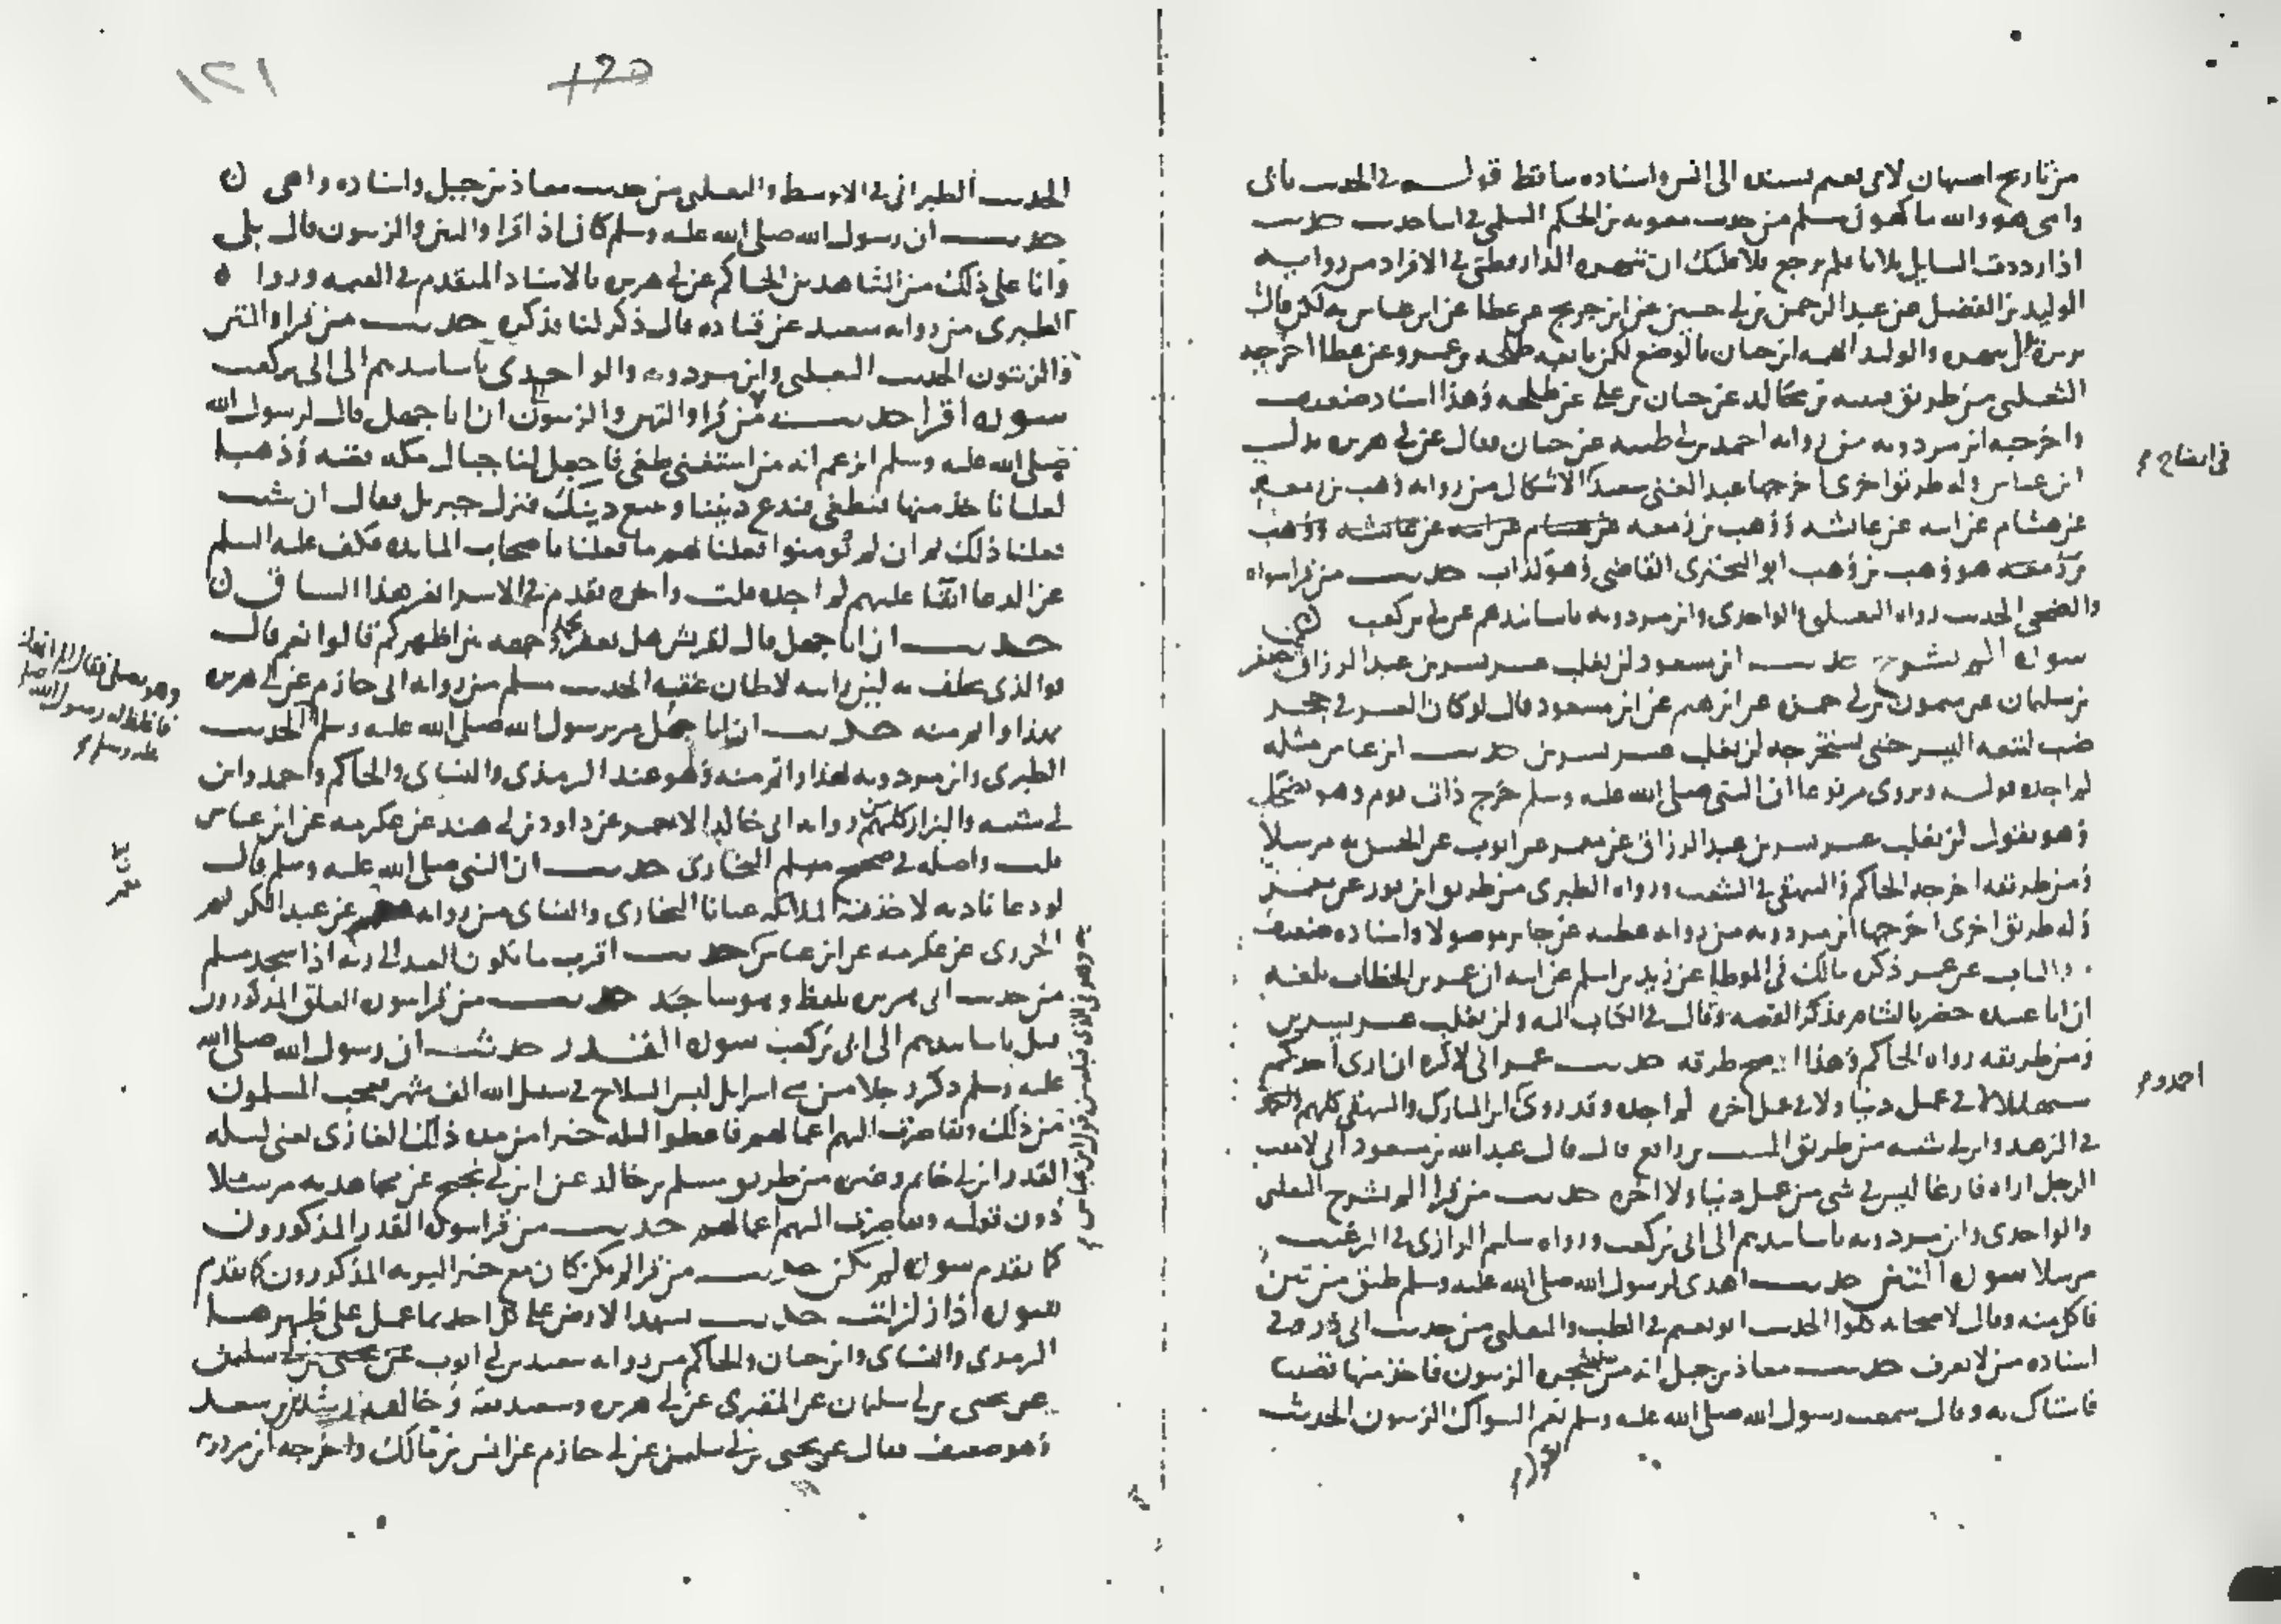 من تاريخ اصبهان لابى نعيم بسنده الى انس واسناده ساقط قوله فى الحديث بابى
وامى هو والله ما كهرنى مسلم من حديث معوية بن الحكم السلمى فى اثنا حديث حديث
اذا رددت السايل ثلاثا فلم يرجع فلا عليك ان تنهره الدارقطنى فى الافراد من رواية
الوليد بن الفضل عن عبد الرحمن بن حسين عن ابن جريج عن عطا عن ابن عباس به لكن قال
والوليد اتهمه ابن حبان بالوضع لكن تابعه طلحة بن عمرو عن عطا اخرجه
الثعلبى من طريق حبان بن على عن طلحة وهذا اسناد ضعيف
واخرجه ابن مردويه من رواية احمد بن ابى طيبة عن حبان فقال عن ابى هريره بدل
ابن عباس وله طريق اخرى اخرجها عبد الغنى بن سعيد من رواية وهب بن زمعة
عن هشام عن ابيه عن عائشه ووهب بن زمعه عن هشام عن ابيه عن عائشه ووهب
بن زمعه هو وهب بن وهب ابو البخترى القاضى وهو كذاب حديث من قرا سورة
والضحى الحديث رواه الثعلبى والواحدى وابن مردويه باسانيدهم عن ابى بن كعب
سورة الم نشرح حديث ابن مسعود لن يغلب عسر يسرين عبد الرزاق عن جعفر
بن سليمان عن ميمون ابى حمزة عن ابرهيم عن ابن مسعود قال لو كان العسر فى جحر
ضب لتبعه اليسر حتى يستخرجه لن يغلب عسر يسرين حديث ابن عباس مثله
لم اجده قوله وروى مرفوعا ان النبى صلى الله عليه وسلم خرج ذات يوم وهو يضحك
وهو يقول لن يغلب عسر يسرين عبد الرزاق عن معمر عن ايوب عن الحسن به مرسلا
ومن طريقه اخرجه الحاكم والبيهقى فى الشعب ورواه الطبرى من طريق ابن ثور عن معمر
وله طريق اخرى اخرجها ابن مردويه من رواية عطية عن جابر موصولا واسناده ضعيف
وفى الباب عن عمر ذكره مالك فى الموطا عن زيد بن اسلم عن ابيه ان عمر بن الخطاب بلغه
ان ابا عبيده حضر بالشام فذكر القصه وقال فى الكتاب اليه ولن يغلب عسر يسرين
ومن طريقه رواه الحاكم وهذا اصح طرقه حديث عمر انى لاكره ان ارى احدكم
سبهللا لا فى عمل دنيا ولا فى عمل اخرة لم اجده وقد روى ابن المبارك والبيهقى كلهم
فى الزهد وابن ابى شيبه من طريق المسيب بن رافع قال قال عبد الله بن مسعود انى لامقت
الرجل اراه فارغا ليس فى شى من عمل دنيا ولا اخرة حديث من قرا الم نشرح الثعلبى
والواحدى وابن مردويه باسانيدهم الى ابى بن كعب ورواه سليم الرازى فى الترغيب
مرسلا سورة التين حديث اهدى لرسول الله صلى الله عليه وسلم طبق من تين
فاكل منه وقال لاصحابه كلوا الحديث ابو نعيم فى الطب والثعلبى من حديث ابى ذر وفى
اسناده من لا يعرف حديث معاذ بن جبل انه مر بشجرة الزيتون فاخذ منها قضيبا
فاستاك به وقال سمعت رسول الله صلى الله عليه وسلم يقول نعم السواك الزيتون الحديث
احدو م
١٢١
١٢٥
الحديث الطبرانى فى الاوسط والثعلبى من حديث معاذ بن جبل واسناده واهى ن
حديث ان رسول الله صلى الله عليه وسلم كان اذا قرا والتين والزيتون قال بلى
وانا على ذلك من الشاهدين الحاكم عن ابى هريره بالاسناد المتقدم فى القيمه وروا ه
الطبرى من رواية سعيد عن قتاده قال ذكر لنا فذكره حديث من قرا والتين
والزيتون الحديث الثعلبى وابن مردويه والواحدى باسانيدهم الى ابى بن كعب
سورة اقرا حديث من قرا والتين والزيتون ان ابا جهل قال لرسول الله
صلى الله عليه وسلم اتزعم انه من استغنى طغى فاجعل لنا جبال مكه فضه وذهبا
لعلنا ناخذ منها فنطغى فندع ديننا ونتبع دينك فنزل جبريل فقال ان شيت
فعلنا ذلك ثم ان لم يومنوا فعلنا بهم ما فعلنا باصحاب المايده فكف عليه السلم
عن الدعا ابقا عليهم لم اجده قلت واخره تقدم فى الاسرا بغير هذا السياق ن
حديث ان ابا جهل قال لقريش هل يعفر محمد وجهه بين اظهركم قالوا نعم قال
فوالذى يحلف به لئن رايته لاطان عنقه الحديث مسلم من رواية ابى حازم عن ابى هريره
بهذا واتم منه حديث ان ابا جهل مر برسول الله صلى الله عليه وسلم الحديث
وهو يصلى فقال الم انهك
فاغلظ له رسول الله صلى
عليه وسلم م
الطبرى وابن مردويه بهذا واتم منه وهو عند الترمذى والنساى والحاكم واحمد وابن
ابى شيبه والبزار كلهم من رواية ابى خالد الاحمر عن داود بن ابى هند عن عكرمه عن ابن عباس
قلت واصله فى صحيح البخارى حديث ان النبى صلى الله عليه وسلم قال
لو دعا ناديه لاخذته الملائكه عيانا البخارى والنساى من رواية معمر عن عبد الكريم
الجزرى عن عكرمه عن ابن عباس حديث اقرب ما يكون العبد الى ربه اذا سجد مسلم
من حديث ابى هريره بلفظ وهو ساجد حديث من قرا سورة العلق المذكورون
قبل باسانيدهم الى ابى بن كعب سورة القدر حديث ان رسول الله صلى الله
عليه وسلم ذكر رجلا من بنى اسرايل لبس السلاح فى سبيل الله الف شهر فعجب المسلمون
من ذلك وتقاصرت اليهم اعمالهم فاعطوا ليله خيرا من مدة ذلك الغازى يعنى ليله
القدر ابن ابى حاتم وغيره من طريق مسلم بن خالد عن ابن ابى نجيح عن مجاهد به مرسلا
دون قوله وتقاصرت اليهم اعمالهم حديث من قرا سورة القدر المذكورون
كما تقدم سورة لم يكن حديث من قرا لم يكن كان مع خير البريه المذكورون كما تقدم
سورة اذا زلزلت حديث تشهد الارض على كل احد بما عمل على ظهرها
الترمذى والنساى وابن حبان والحاكم من رواية سعيد بن ابى ايوب عن يحيى بن ابى سليمن
عن يحيى بن ابى سليمان عن المقبرى عن ابى هريره وسعيد ثقة وخالفه رشدين بن سعد
وهو ضعيف فقال عن يحيى بن ابى سليمن عن ابى حازم عن انس بن مالك واخرجه ابن مردويه